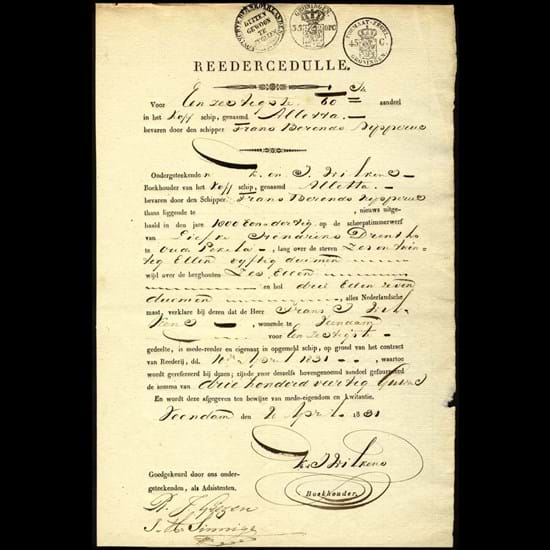 BUITEN
GEWOON
TE
ZEGELEN
GRONINGEN
FORMAAT-ZEGEL
45 C.
GRONINGEN
REEDERCEDULLE.
Voor Een zestigste 1/60 aandeel
in het Koff schip, genaamd Alletta
bevaren door den schipper Frans Berends
Ondergeteekende K. en J. Wilkens
Boekhouder van het Koff schip, genaamd Alletta
bevaren door den Schipper Frans Berends
thans liggende te , nieuws uitge-
haald in den jare 1800 Een dertig op de scheepstimmerwerf
van Hendriks Drenth
te Oude Pekela, lang over de steven Zes en twin-
tig Ellen vyftig duimen
wijd over de berghouten Zes Ellen
en hol drie Ellen zeven
duimen , alles Nederlandsche
maat, verklare bij deren dat de Heer Frans J. Wil-
kens , wonende te Veendam
voor een zestigst
gedeelte, is mede-reeder en eigenaar in opgemeld schip, op grond van het contract
van Reederij, dd. April 1831 , waartoe
word gerefereerd bij dezen; zijnde voor deszelfs bovengenoemd aandeel gefourneerd
de somma van drie honderd veertig Guld
En wordt deze afgegeven ten bewijze van mede-eigendom en kwitantie.
Veendam den 2 April 1831
K. J. Wilkens
Boekhouder.
Goedgekeurd door ons onder-
geteekenden, als Adsistenten.
J. H. Sinnige